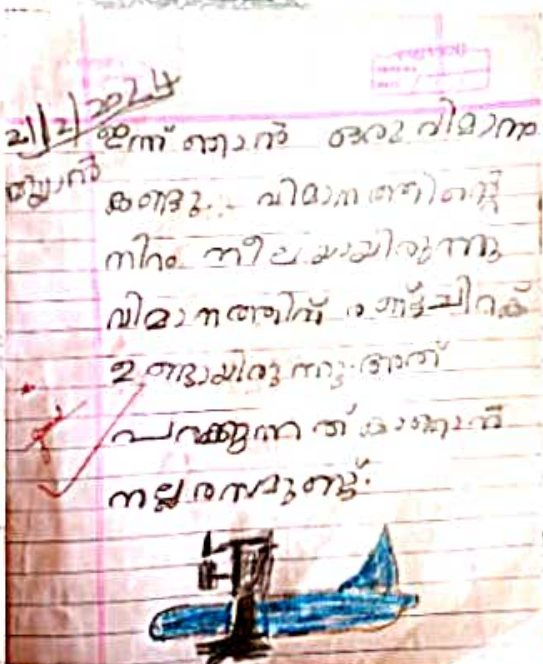 21/2/2024
ഇന്ന് ഞാൻ ഒരു വിമാനം
കണ്ടു. വിമാനത്തിന്റെ
നിറം നീലയായിരുന്നു
വിമാനത്തിന് രണ്ട് ചിറക്
ഉണ്ടായിരുന്നു. അത്
പറക്കുന്നത് കാണാൻ
നല്ല രസമുണ്ട്.